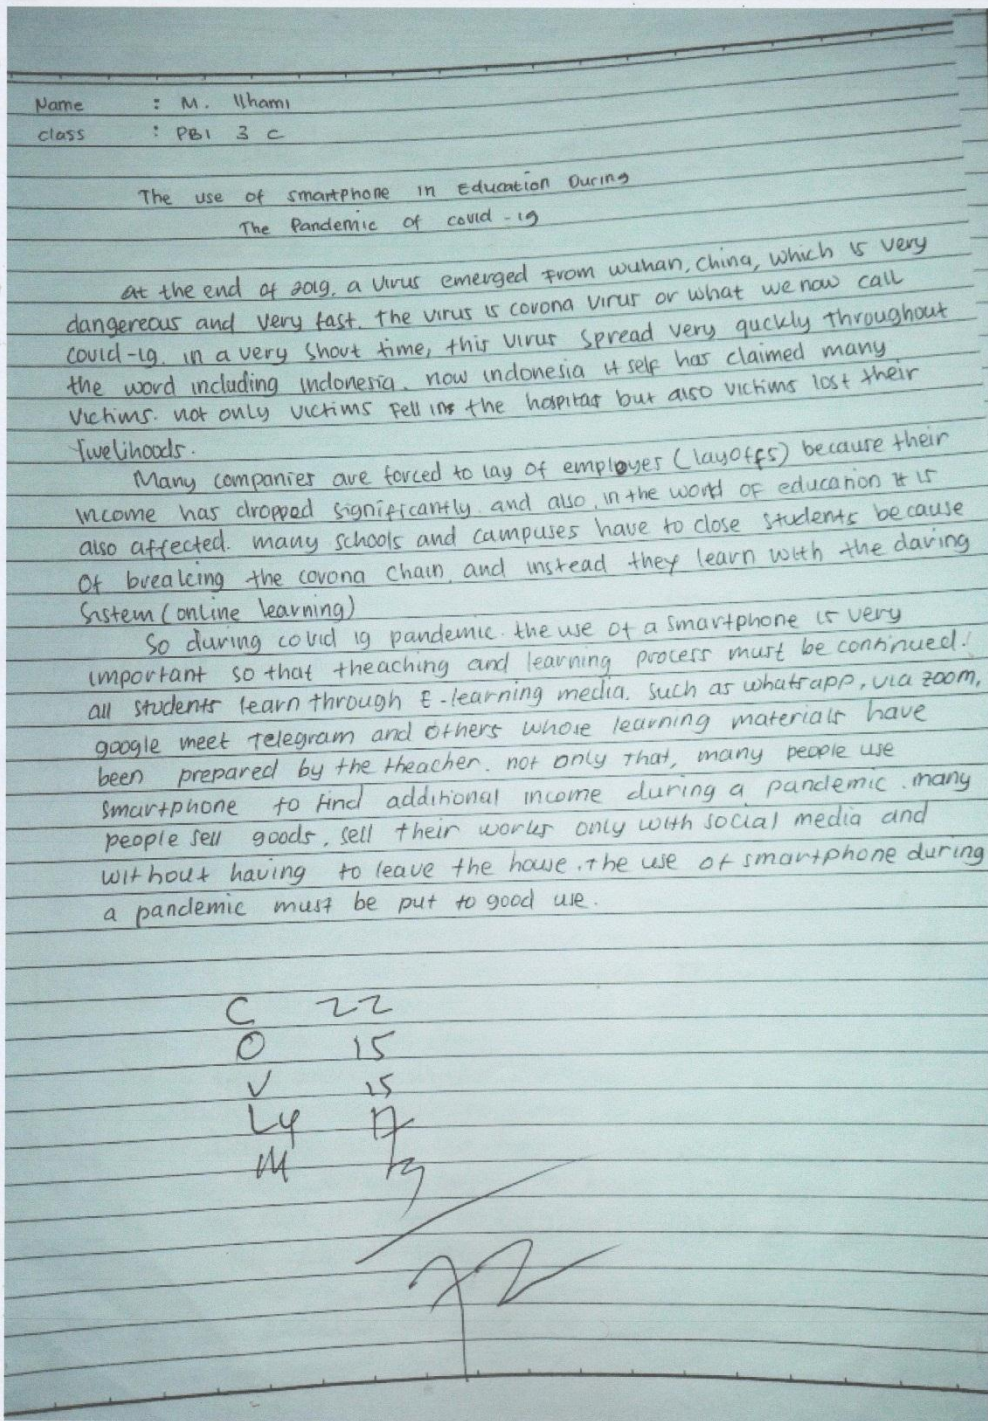 Name : M. Ilhami
class : PBI 3 C
The use of smartphone in Education During
The Pandemic of covid -19
at the end of 2019, a virus emerged from wuhan, china, which is very
dangereous and very fast. the virus is corona virus or what we now call
covid-19. in a very short time, this virus spread very quckly throughout
the word including indonesia. now indonesia it self has claimed many
victims. not only victims fell in the hospital but also victims lost their
livelihoods.
Many companies are forced to lay of employes (layoffs) because their
income has dropped significantly. and also, in the world of education it is
also affected. many schools and campuses have to close students because
of breaking the corona chain, and instead they learn with the daring
sistem (online learning)
So during covid 19 pandemic. the use of a smartphone is very
important so that theaching and learning process must be continued.
all students learn through E-learning media. such as whatsapp, via zoom,
google meet Telegram and others whose learning materials have
been prepared by the theacher. not only that, many people use
smartphone to find additional income during a pandemic. many
people sell goods, sell their works only with social media and
without having to leave the house. the use of smartphone during
a pandemic must be put to good use.
C 22
O 15
V 15
Lg 17
M 3
72